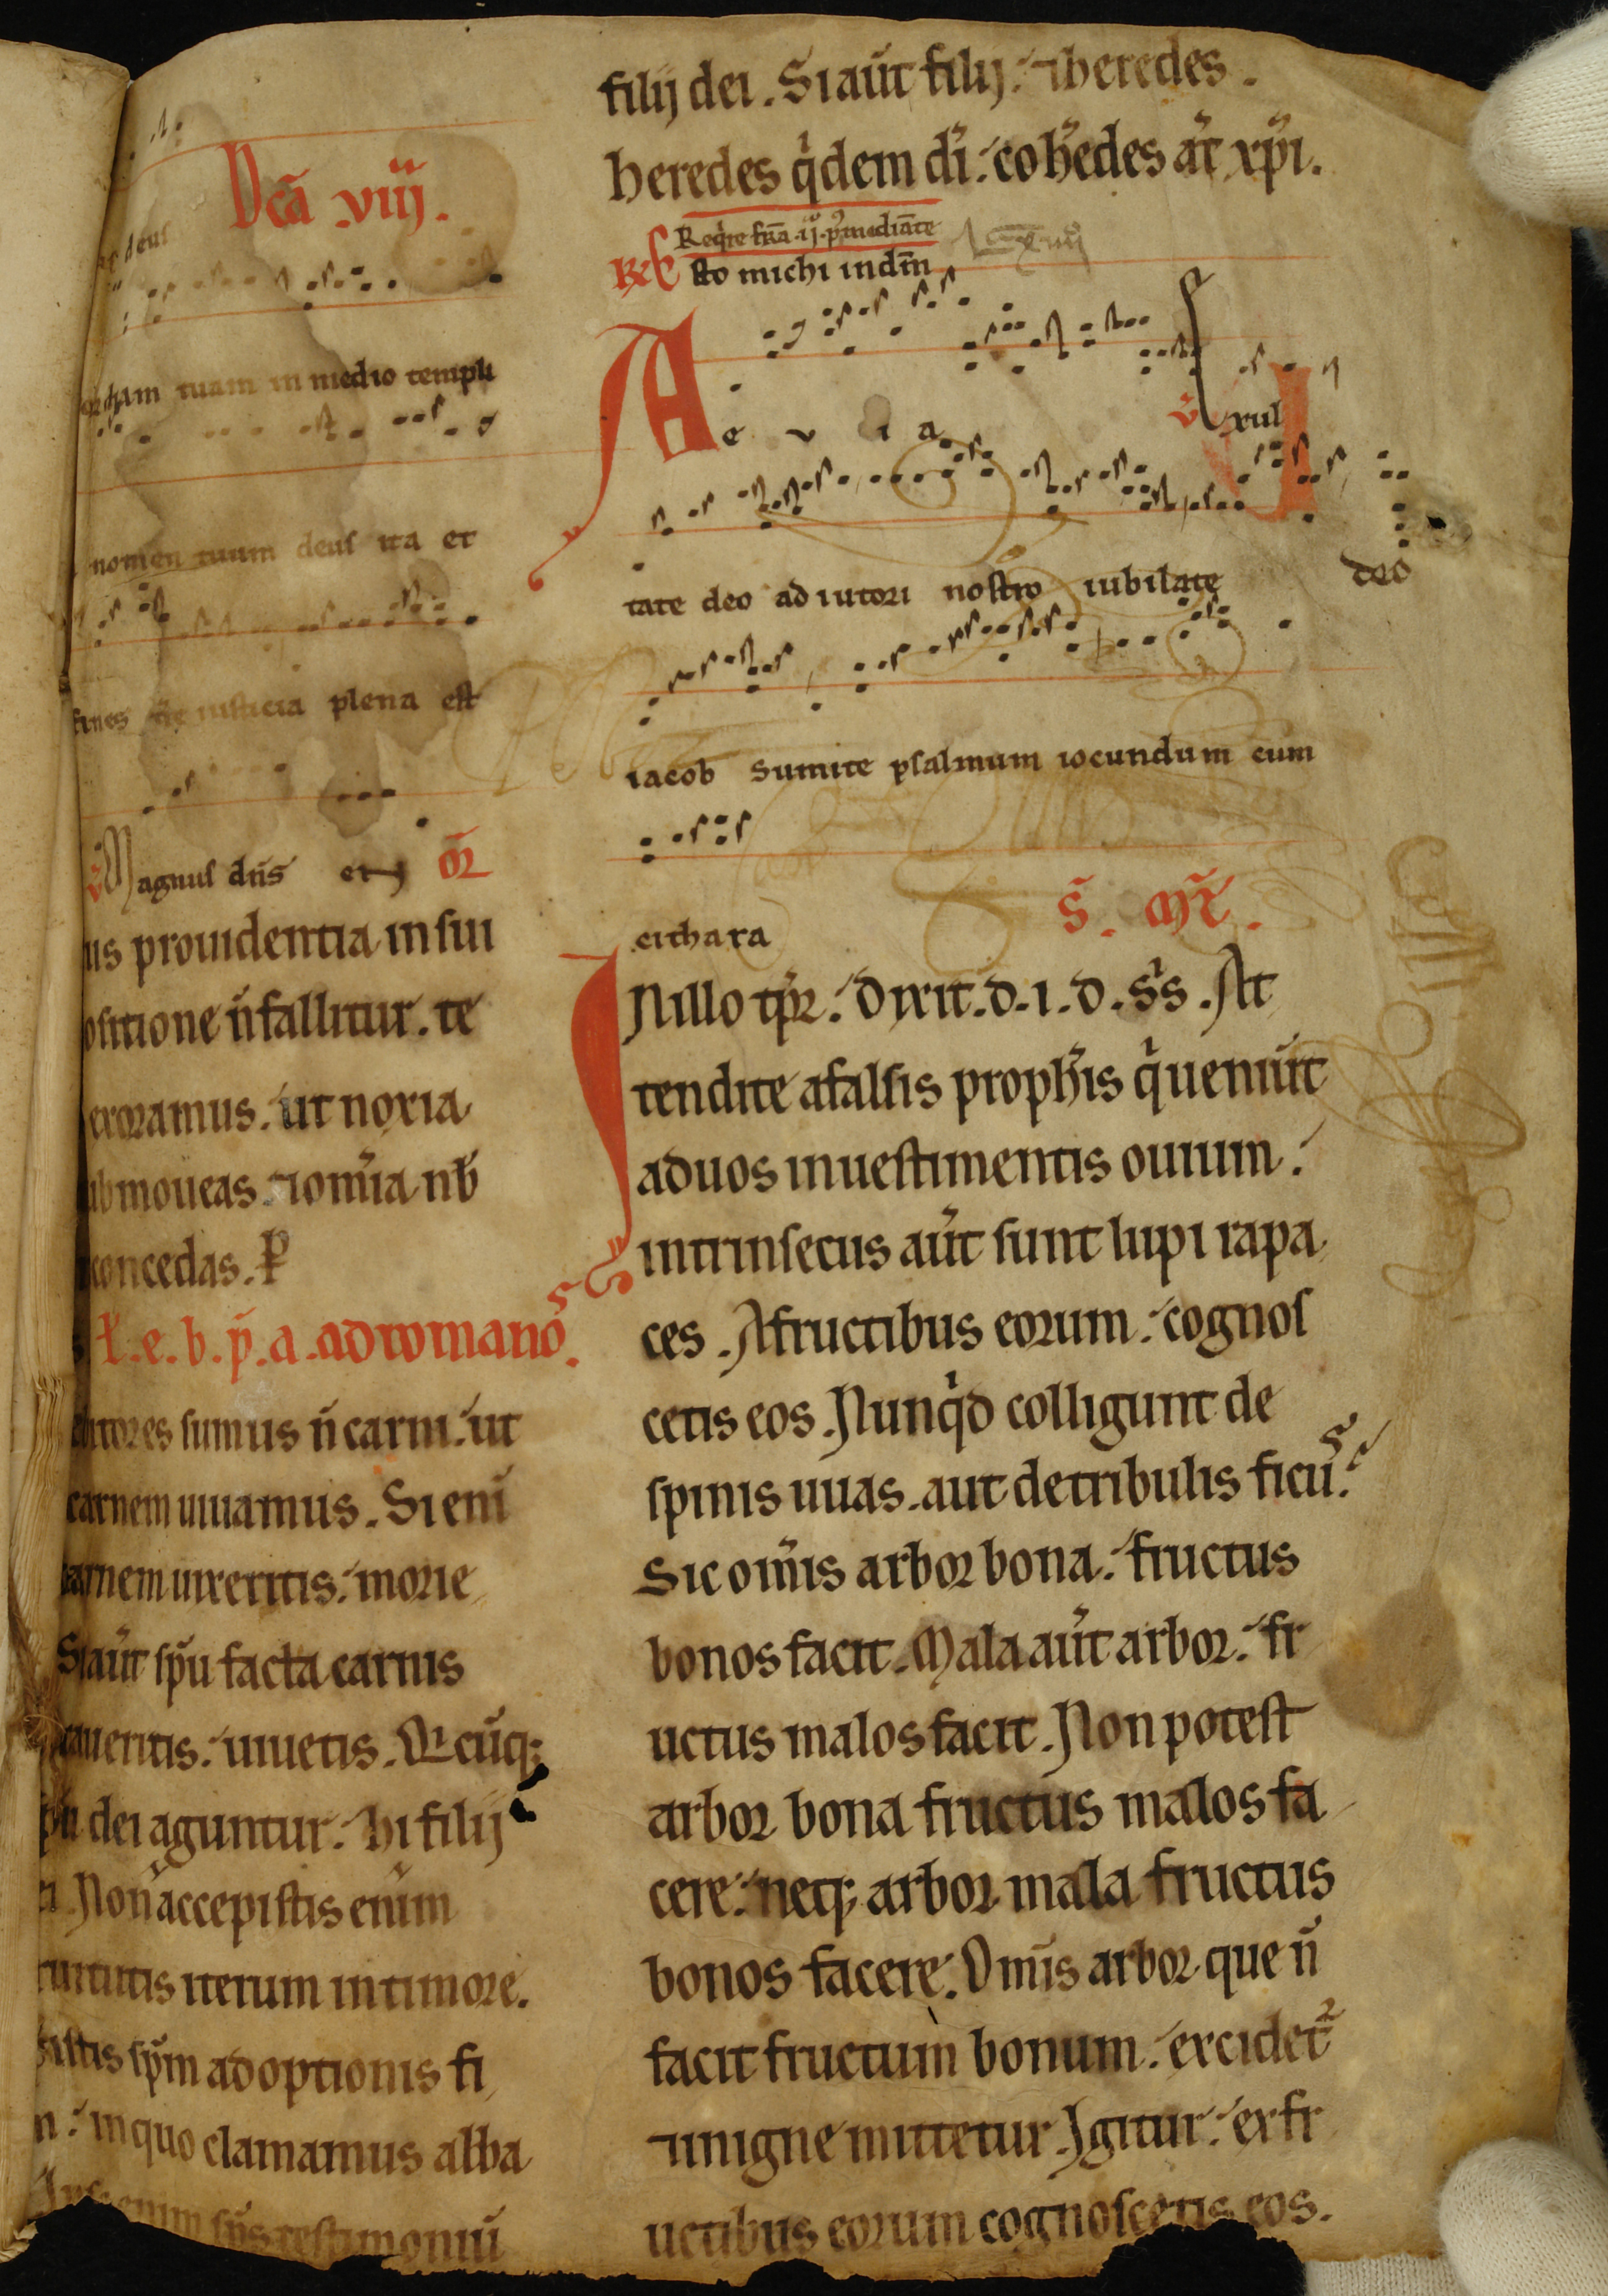 Dcã .viij.
deus
tuam in medio templi
nomen tuum deus ita et
fines t̃re iusticia plena est
v̄ Magnus dñs et Or̃
us prouidentia in sui
ositione ñ fallitur. te
exoramus. ut noxia
ubmoueas. ⁊ omĩa nb̃
concedas. P
.e. b. p̃. a. ad romanos.
ebitores sumus ñ carni. ut
carnem uiuamus. Si eni᷑
carnem uixeritis. morie
Si aũt sp̃u facta carnis
caueritis. uiuetis. Qi cũq;
sp̃u dei aguntur. hi filij
ei Non accepistis enim
ruitutis iterum in timore.
sistis sp̃m adoptionis fi
n. in quo clamamus abba
sp̃s testimoniũ
filij dei. Si aũt filij. ⁊ heredes.
heredes q̇dem di᷑. coh̃edes aũt xp̃i.
Reqire fr̃a .ij. p᷑mediãte
R̃ Esto michi in dm̃
Ae u i a
v̄ Exul
tate deo adiutori nostro iubilate deo
iacob Sumite psalmum iocundum cum
cithara
S̃. Mt̃.
INillo tp̃r. Dixit. d. i. d. s̃s. At
tendite a falsis proph̃is q̇ ueniũt
ad uos in uestimentis ouium.
intrinsecus aũt sunt lupi rapa
ces. A fructibus eorum. cognos
cetis eos. Nunq̇d colligunt de
spinis uuas. aut de tribulis ficus.
Sic om̃is arbor bona. fructus
bonos facit. Mala aũt arbor. fr
uctus malos facit. Non potest
arbor bona fructus malos fa
cere. neq; arbor mala fructus
bonos facere. Om̃is arbor que ñ
facit fructum bonum. excidet᷑
⁊ in igne mittetur. Igitur. ex fr
uctibus eorum cognoscetis eos.